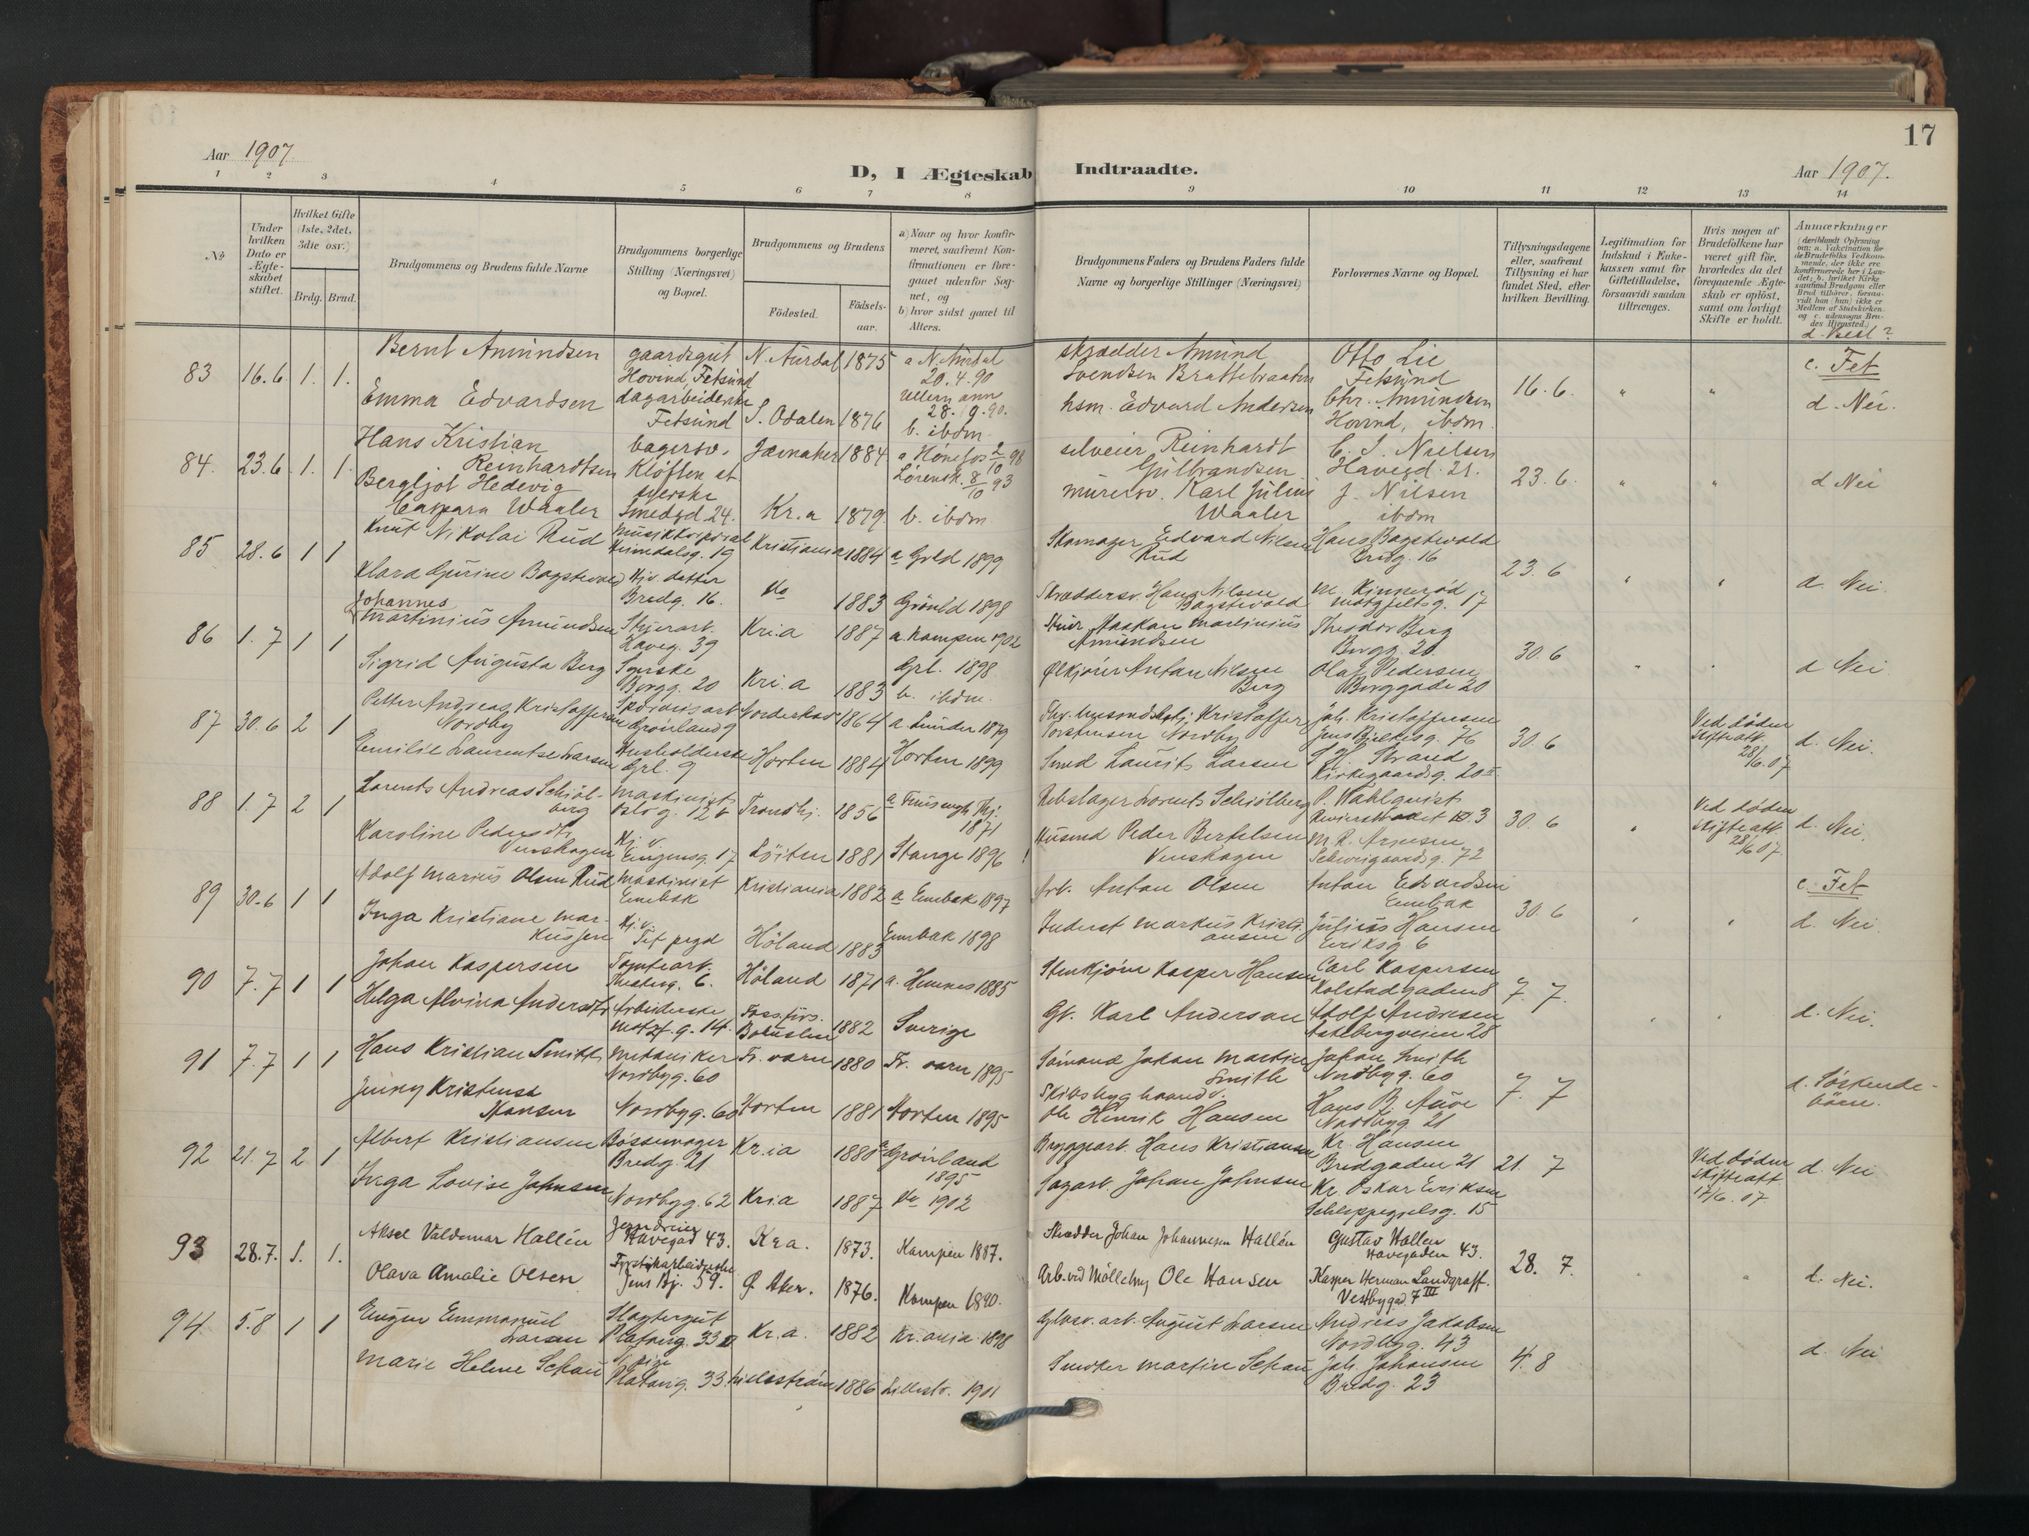 17
Aar 1907
D, I Ægteskab Indtraadte.
Aar 1907.
1 2 3 4 5 6 7 8 9 10 11 12 13 14
№
Under hvilken Dato er Ægteskabet stiftet.
Hvilket Gifte (1ste, 2det, 3die osv.)
Brdg. Brud.
Brudgommens og Brudens fulde Navne
Brudgommens borgerlige Stilling (Næringsvei) og Bopæl.
Brudgommens og Brudens
Födested.
Födselsaar.
a) Naar og hvor konfirmeret, saafremt Konfirmationen er foregaaet udenfor Sognet, og
b) hvor sidst gaaet til Alters.
Brudgommens Faders og Brudens Faders fulde Navne og borgerlige Stillinger (Næringsvei)
Forlovernes Navne og Bopæl.
Tillysningsdagene eller, saafremt Tillysning ei har fundet Sted, efter hvilken Bevilling.
Legitimation for Indskud i Enkekassen samt for Giftetilladelse, forsaavidt saadan tiltrænges.
Hvis nogen af Brudefolkene har været gift för, hvorledes da det foregaaende Ægteskab er oplöst, samt om lovligt Skifte er holdt.
Anmærkninger
d. Besl?
83 16.6 1. 1.
Bernt Amundsen gaardsgut Hovind, Fetsund N. Aurdal 1875 a N. Aurdal 20.4.90
skrædder Amund Svendsen Brattebraaten Otto Lie Fetsund 16.6. " " c. Fet
Emma Edvardsen dagarbeiderske Fetsund S. Odalen 1876 28.9.90. b. ibdm
hsm. Edvard Andersen Chr. Amundsen Hovind, ibdm. d. Nei.
84. 23.6 1. 1.
Hans Kristian Reinhardtsen bagersv. Kløften st Jævnaker 1884 a Hønefos 2/10 98
Reinhardt Gulbrandsen C. J. Nielsen Havegd. 21. 23.6. " " d Nei
Bergljot Hedevig Caspara Waaler syerske Smedgd 24. Kr.a 1879. Lørensk. 8/10 93 b. ibdm
murersv. Karl Julius Waaler J. Nilsen ibdm
85 28.6 1 1
Knut Nikolai Rud Heimdalsg. 19 Kristiania 1884 a Grld 1899
Skomager Edvard Nilsen Rud Hans Bagstevold Bredg. 16 23.6 " " d. Nei.
Klara Gurine Bagstevold Hjv. datter Bredg. 16. do 1883 Grønld 1898
Skræddersv. Hans Nilsen Bagstevold M. Kinnerød Motzfeltsg. 17
86 1.7 1 1
Johannes Martinius Amundsen Haveg. 39 Kria 1887 a. Kampen 1902
Haakan Martinius Amundsen Theodor Berg Borgg. 20 30.6 " d Nei
Sigrid Augusta Berg Syerske Borgg. 20 Kri.a 1883 Grl. 1898 b. ibdm.
Ølkjører Anton Nilsen Berg Olaf Pedersen Borggade 20
87 30.6 2 1
Petter Andreas Kristoffersen Nordby Grønland 9 1864 a. Sunder 1879
Kristoffer Torstensen Nordby Joh. Kristoffersen Jens Bjelkesg. 76 30.6 Ved døden Skifteatt 28/6.07 d. Nei.
Emilie Laurentse Larsen Husholderske Grl. 9 Horten 1884 Horten 1899
Smed Laurits Larsen S. H. Strand Kirkegaardsg. 20 II
88 1.7 2 1
Lorents Andreas Schiølberg Maskinist Oslog. 12 b Trondhj. 1856 1871
Rebslager Lorents Schiølberg P. Wahlquist 30.6 " Ved døden Skifteatt. 28/6 07. d. Nei.
Karoline Pedersdtr Venshagen Hj. v. Enginsg. 17 Løiten 1881 Stange 1896
Husmd Peder Bertelsen Venshagen M. R. Arnesen Schweigaardsg. 72
89 30.6 1 1
Adolf Marius Olsen Rud Maskinist Enebak Kristiania 1882 a Enebak 1897
Arb. Anton Olsen Anton Edvardsen Enebak 30.6 " " c. Fet
Inga Kristiane Markussen Hj. v. Fet prgd Høland 1883 Enebak 1898
Inderst Markus Kristiansen Julius Hansen Eriksg 6 d. Nei
90 7.7 1 1
Johan Kaspersen Tomtearb. 6. Høland 1871 a. Hemnes 1885
Stenkjører Kasper Hansen Carl Kaspersen Kolstadgaden 8 7.7. " " d. Nei.
Helga Alvina Andersdtr Arbeiderske Motzf. g. 14. Bohuslen 1882 Sverige
Gb. Karl Anderson Adolf Andresen Aakebergveien 28
91 7.7 1 1
Hans Kristian Smith Mekaniker Nordbyg. 60 Fr. værn 1880 Fr. værn 1895
Sømand Johan Martin Smith Johan Smith Nordbyg. 60 7. 7 d. Søskendebørn.
Jenny Kristensa Hansen Nordbyg. 60 Horten 1881 Horten 1895
Ole Henrik Hansen Hans B. Aure Nordbyg 21
92 21.7 2 1
Albert Kristiansen Bøssemager Bredg. 21 Kr.ia 1880 a Grønland 1895
Bryggearb. Hans Kristiansen Kr. Hansen Bredgaden 21 21. 7 Ved døden Skifteatt 17/6.07 d. Nei
Inga Lovise Johnsen Nordbyg. 62 Kria 1887 do 1902
Sagarb. Johan Johnsen Kr. Oskar Eriksen Schleppegrelsg. 15
93 28.7. 1. 1.
Aksel Valdemar Hallén Jerndreier Havegad 43. Kr.a. 1873. Kampen 1887.
Skrædder Johan Johannesen Hallén Gustav Hallen Havegaden 43. 28. 7. " " d. Nei.
Olava Amalie Olsen Fyrstikarbeiderske Jens Bj. 59. Ø. Aker. 1876. Kampen 1890.
Arb. ved Mölleby, Ole Hansen Kasper Herman Landgraff. Vestbygad 7 III
94 5.8 1 1
Eugen Emmanuel Larsen Slagtergut Platoug. 33 Kr.a. 1882 Kr.ania 1898
August Larsen Andreas Jakobsen Nordbyg. 43 4.8 d. Nei
Marie Helene Schau Platoug. 33 Lillestrøm 1886 Lillestr. 1901
Snedker Martin Schau Joh. Johansen Bredg. 23